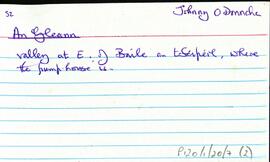 52 Johnny O Donncha
An Gleann
valley at E. of Baile an tSéipéil, where
the pump house is.
P120/1/20/7 (2)